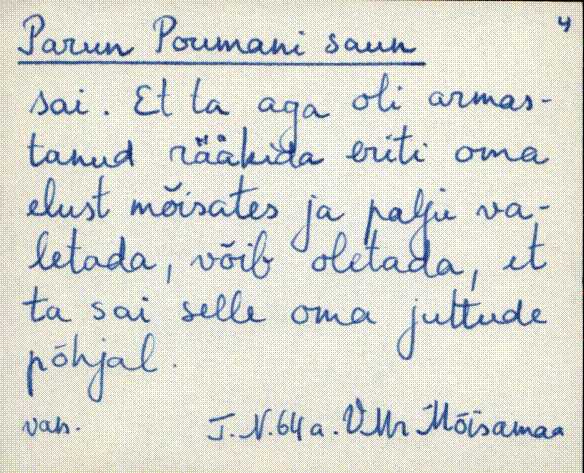 4
Parun Poumani saun
sai. Et ta aga oli armas-
tanud rääkida eriti oma
elust mõisates ja palju va-
letada, võib oletada, et
ta sai selle oma juttude
põhjal.
van. J. N. 64 a. VMr Mõisamaa